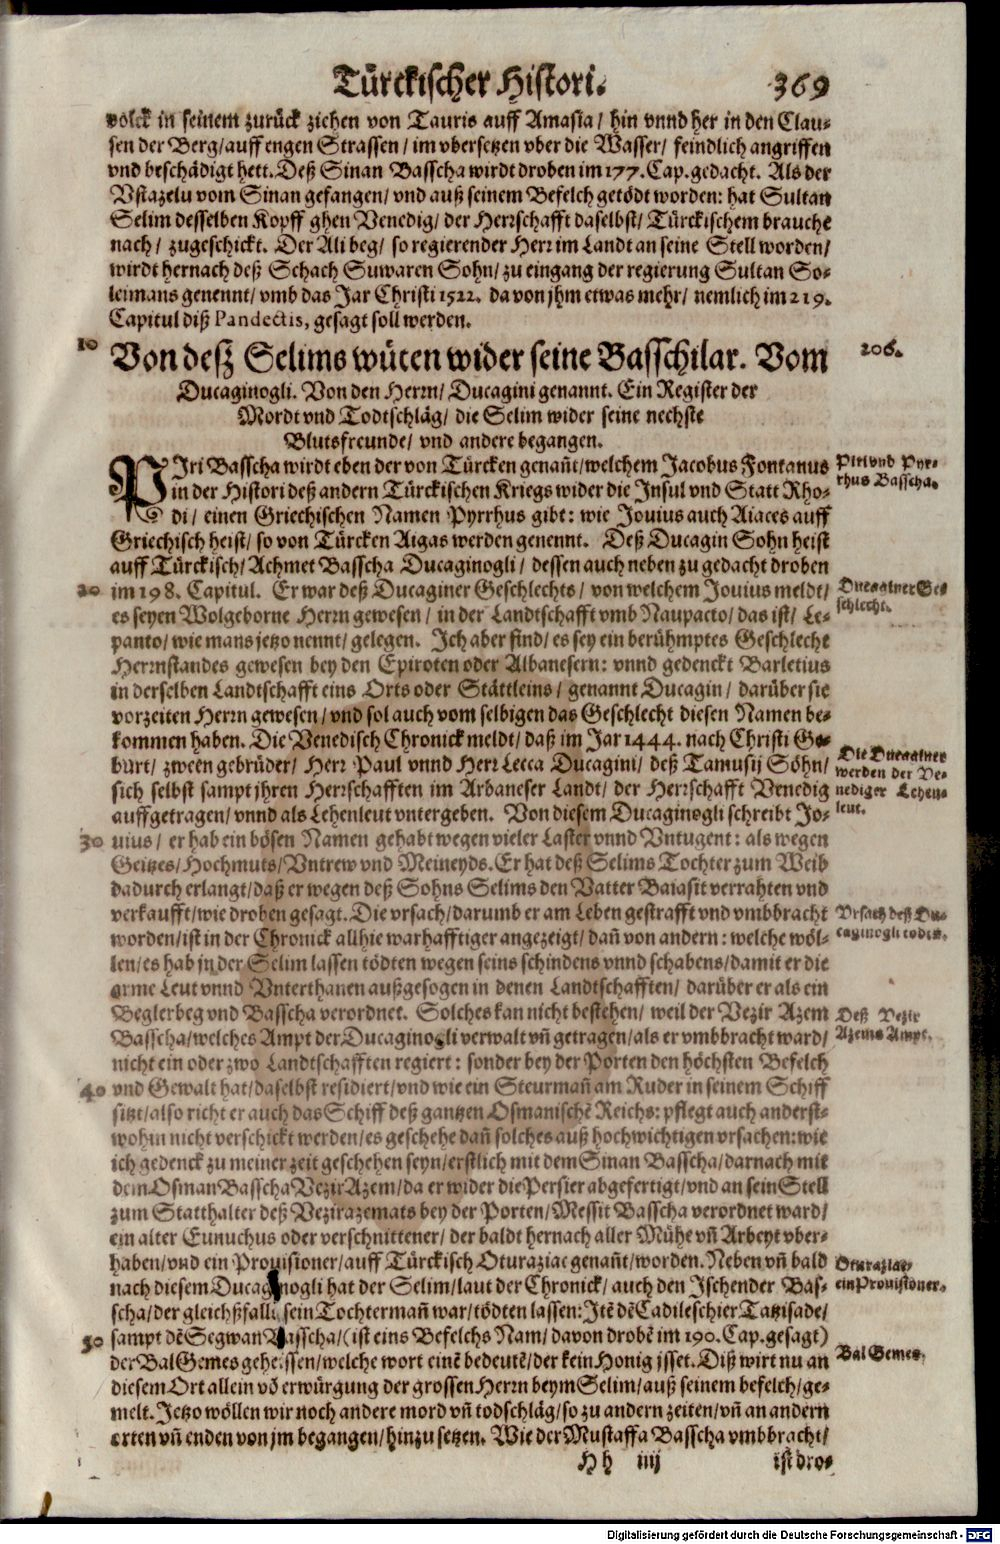 Türckischer Histori. 369
volck in seinem zurück ziehen von Tauris auff Amasia/ hin vnnd her in den Clau-
sen der Berg/auff engen Strassen/ im vbersetzen vber die Wasser/ feindlich angriffen
vnd beschädigt hett. Deß Sinan Basscha wirdt droben im 177. Cap. gedacht. Als der
Vstazelu vom Sinan gefangen/ vnd auß seinem Befelch getödt worden: hat Sultan
Selim desselben Kopff ghen Venedig/ der Herrschafft daselbst/ Türckischem brauche
nach/ zugeschickt. Der Ali beg/ so regierender Herr im Landt an seine Stell worden/
wirdt hernach deß Schach Suwaren Sohn/ zu eingang der regierung Sultan So-
leimans genennt/ vmb das Jar Christi 1522. davon jhm etwas mehr/ nemlich im 219.
Capitul diß Pandectis, gesagt soll werden.
10 Von desz Selims wüten wider seine Basschilar. Vom 206.
Ducaginogli. Von den Herrn/ Ducagini genannt. Ein Register der
Mordt vnd Todtschläg/ die Selim wider seine nechste
Blutsfreunde/ vnd andere begangen.
PIri Basscha wirdt eben der von Türcken genañt/welchem Jacobus Fontanus
Piri vnd Pyr-
in der Histori deß andern Türckischen Kriegs wider die Insul vnd Statt Rho-
rhus Basscha.
di/ einen Griechischen Namen Pyrrhus gibt: wie Jouius auch Aiaces auff
Griechisch heist/ so von Türcken Aigas werden genennt. Deß Ducagin Sohn heist
auff Türckisch/ Achmet Basscha Ducaginogli/ dessen auch neben zu gedacht droben
20 im 198. Capitul. Er war deß Ducaginer Geschlechts/ von welchem Jouius meldt/
Ducaginer Ge-
es seyen Wolgeborne Herrn gewesen/ in der Landtschafft vmb Naupacto/ das ist/ Le-
schlecht.
panto/ wie mans jetzo nennt/ gelegen. Ich aber find/ es sey ein berühmptes Geschlecht
Herrnstandes gewesen bey den Epiroten oder Albanesern: vnnd gedenckt Barletius
in derselben Landtschafft eins Orts oder Stättleins/ genannt Ducagin/ darüber sie
vorzeiten Herrn gewesen/ vnd sol auch vom selbigen das Geschlecht diesen Namen be-
kommen haben. Die Venedisch Chronick meldt/ daß im Jar 1444. nach Christi Ge-
burt/ zween gebrüder/ Herr Paul vnnd Herr Lecca Ducagini/ deß Tamusij Söhn/
Die Ducaginer
werden der Ve-
sich selbst sampt jhren Herrschafften im Arbaneser Landt/ der Herrschafft Venedig
nediger Lehen-
auffgetragen/ vnnd als Lehenleut vntergeben. Von diesem Ducaginogli schreibt Jo-
leut.
30 uius/ er hab ein bösen Namen gehabt wegen vieler Laster vnnd Vntugent: als wegen
Geitzes/ Hochmuts/ Vntrew vnd Meineyds. Er hat deß Selims Tochter zum Weib
dadurch erlangt/ daß er wegen deß Sohns Selims den Vatter Baiasit verrahten vnd
verkaufft/ wie droben gesagt. Die vrsach/ darumb er am Leben gestrafft vnd vmbbracht
Vrsach deß Du-
worden/ ist in der Chronick allhie warhafftiger angezeigt/ dañ von andern: welche wöl-
caginogli todts.
len/ es hab jn der Selim lassen tödten wegen seins schindens vnnd schabens/ damit er die
arme Leut vnnd Vnterthanen außgesogen in denen Landtschafften/ darüber er als ein
Beglerbeg vnd Basscha verordnet. Solches kan nicht bestehen/ weil der Vezir Azem
Deß Vezir
Basscha/welches Ampt der Ducaginogli verwalt vñ getragen/als er vmbbracht ward/
Azems Ampt.
nicht ein oder zwo Landtschafften regiert: sonder bey der Porten den höchsten Befelch
40 vnd Gewalt hat/daselbst residiert/vnd wie ein Steurmañ am Ruder in seinem Schiff
sitzt/also richt er auch das Schiff deß gantzen Osmanischẽ Reichs: pflegt auch anderst-
wohin nicht verschickt werden/es geschehe dañ solches auß hochwichtigen vrsachen: wie
ich gedenck zu meiner zeit geschehen seyn/erstlich mit dem Sinan Basscha/darnach mit
dem Osman Basscha Vezir Azem/da er wider die Persier abgefertigt/vnd an sein Stell
zum Statthalter deß Vezirazemats bey der Porten/ Messit Basscha verordnet ward/
ein alter Eunuchus oder verschnittener/ der baldt hernach aller Mühe vñ Arbeyt vber-
haben/vnd ein Prouisioner/auff Türckisch Oturaziac genañt/worden. Neben vñ bald
Oturaziac/
nach diesem Ducaginogli hat der Selim/laut der Chronick/ auch den Ischender Bas-
ein Prouisioner.
scha/der gleichßfalls sein Tochtermañ war/tödten lassen: Itẽ dẽ Cadileschier Tatzisade/
50 sampt dẽ Segwan Basscha/(ist eins Befelchs Nam/ davon drobẽ im 190. Cap. gesagt)
der Bal Gemes geheissen/welche wort einẽ bedeutẽ/der kein Honig jsset. Diß wirt nu an
Bal Gemes.
diesem Ort allein võ erwürgung der grossen Herrn beym Selim/auß seinem befelch/ge-
melt. Jetzo wöllen wir noch andere mord vñ todschläg/so zu andern zeiten/vñ an andern
orten vñ enden von jm begangen/hinzu setzen. Wie der Mustaffa Basscha vmbbracht/
Hh iiij ist dro-
Digitalisierung gefördert durch die Deutsche Forschungsgemeinschaft - DFG